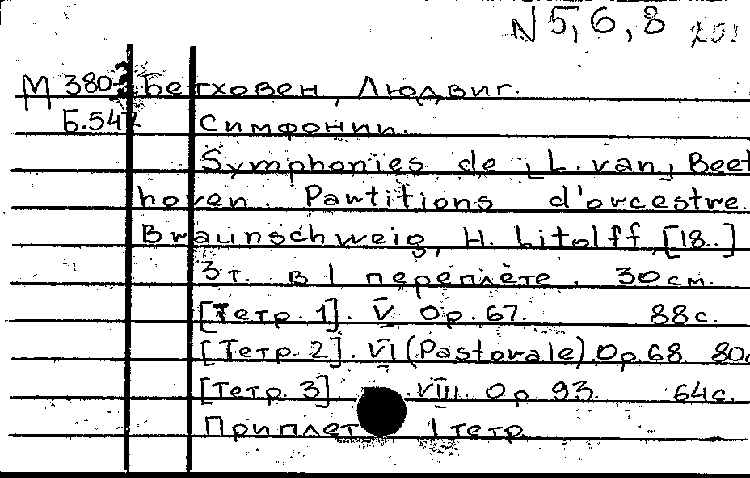 N 5, 6, 8
М 380-2 Бетховен, Людвиг.
Б.547 Симфонии.
Symphonies de [L. van] Beet
hoven. Partitions d'orcestre.
Braunschweig, H. Litolff [18..]
3 т. в 1 переплёте. 30 см.
[Тетр. 1]. V Op. 67. 88 с.
[Тетр. 2]. VI (Pastorale) Op. 68 80с
[Тетр. 3] VIII. Op 93. 64 с.
Приплет 1 тетр